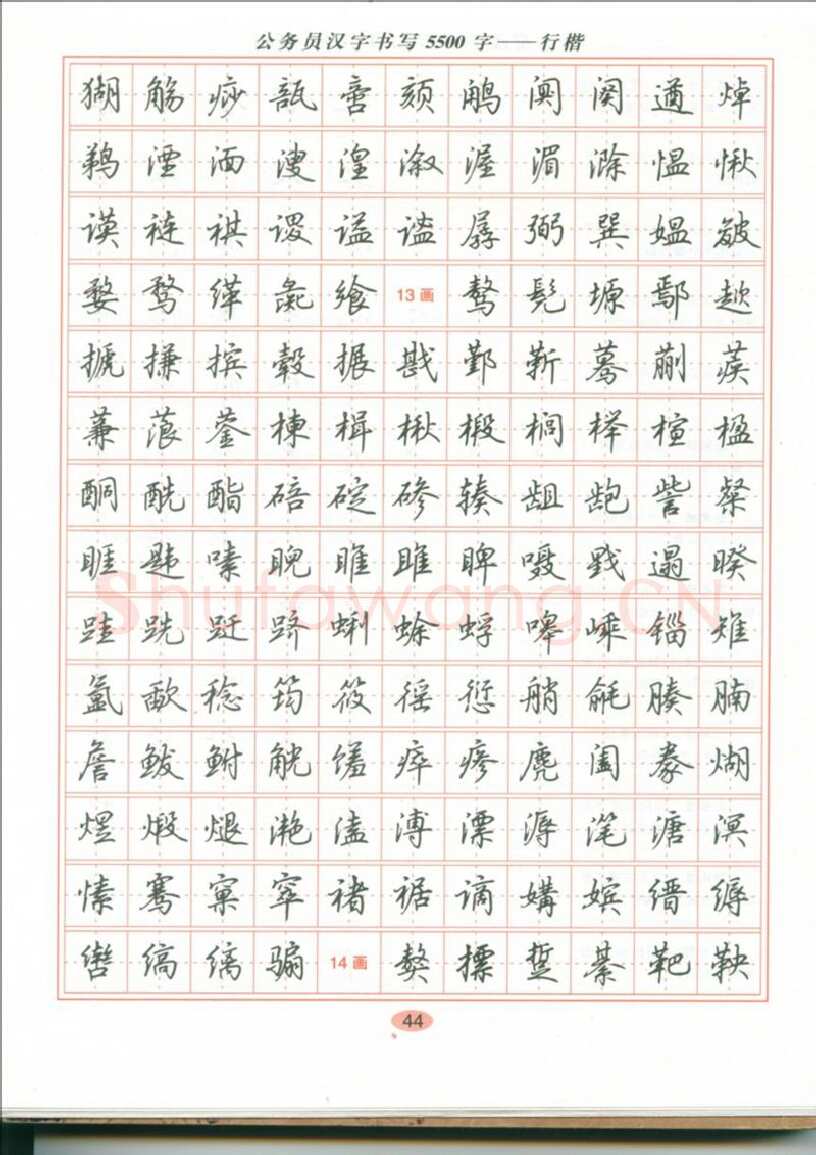 公务员汉字书写5500字——行楷
猢觞痧瓿啻颏鹇阒阕遒焯
鹈湮湎溲湟溆渥湄滁愠愀
谟裢祺谡谥谧孱弼巽媪皴
婺骛缂彘飨13画骜髡塬鄢趑
搋搛摈毂搌戡鄞靳蓦蒯蒺
蒹蒗蓥楝楫楸椴榈榉楦楹
酮酰酯碚碇碜辏龃龅訾粲
睚韪嗉睨睢雎睥嗫戥遢暌
跬跣跹跻蜊蜍蜉嗥嵊锱雉
氲歃稔筠筱徭愆艄毹腠腩
詹鲅鲋觥馐瘁瘆麂阖豢煳
煜煅煺滟溘溥溧溽滗溏溟
愫骞窠窣褚裾谪媾嫔缙缛
辔缟缡骟14画獒摽踅綦靶鞅
44
Shufawang.CN